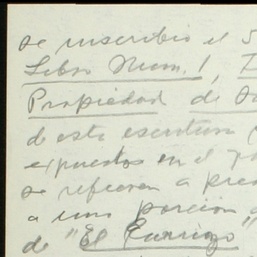 se inscribió el 5
Libro Num. 1, I
Propiedad de
de esta escritura (
expuestos en el
se refieren a pre
a una porción d
de "El Carrizo"